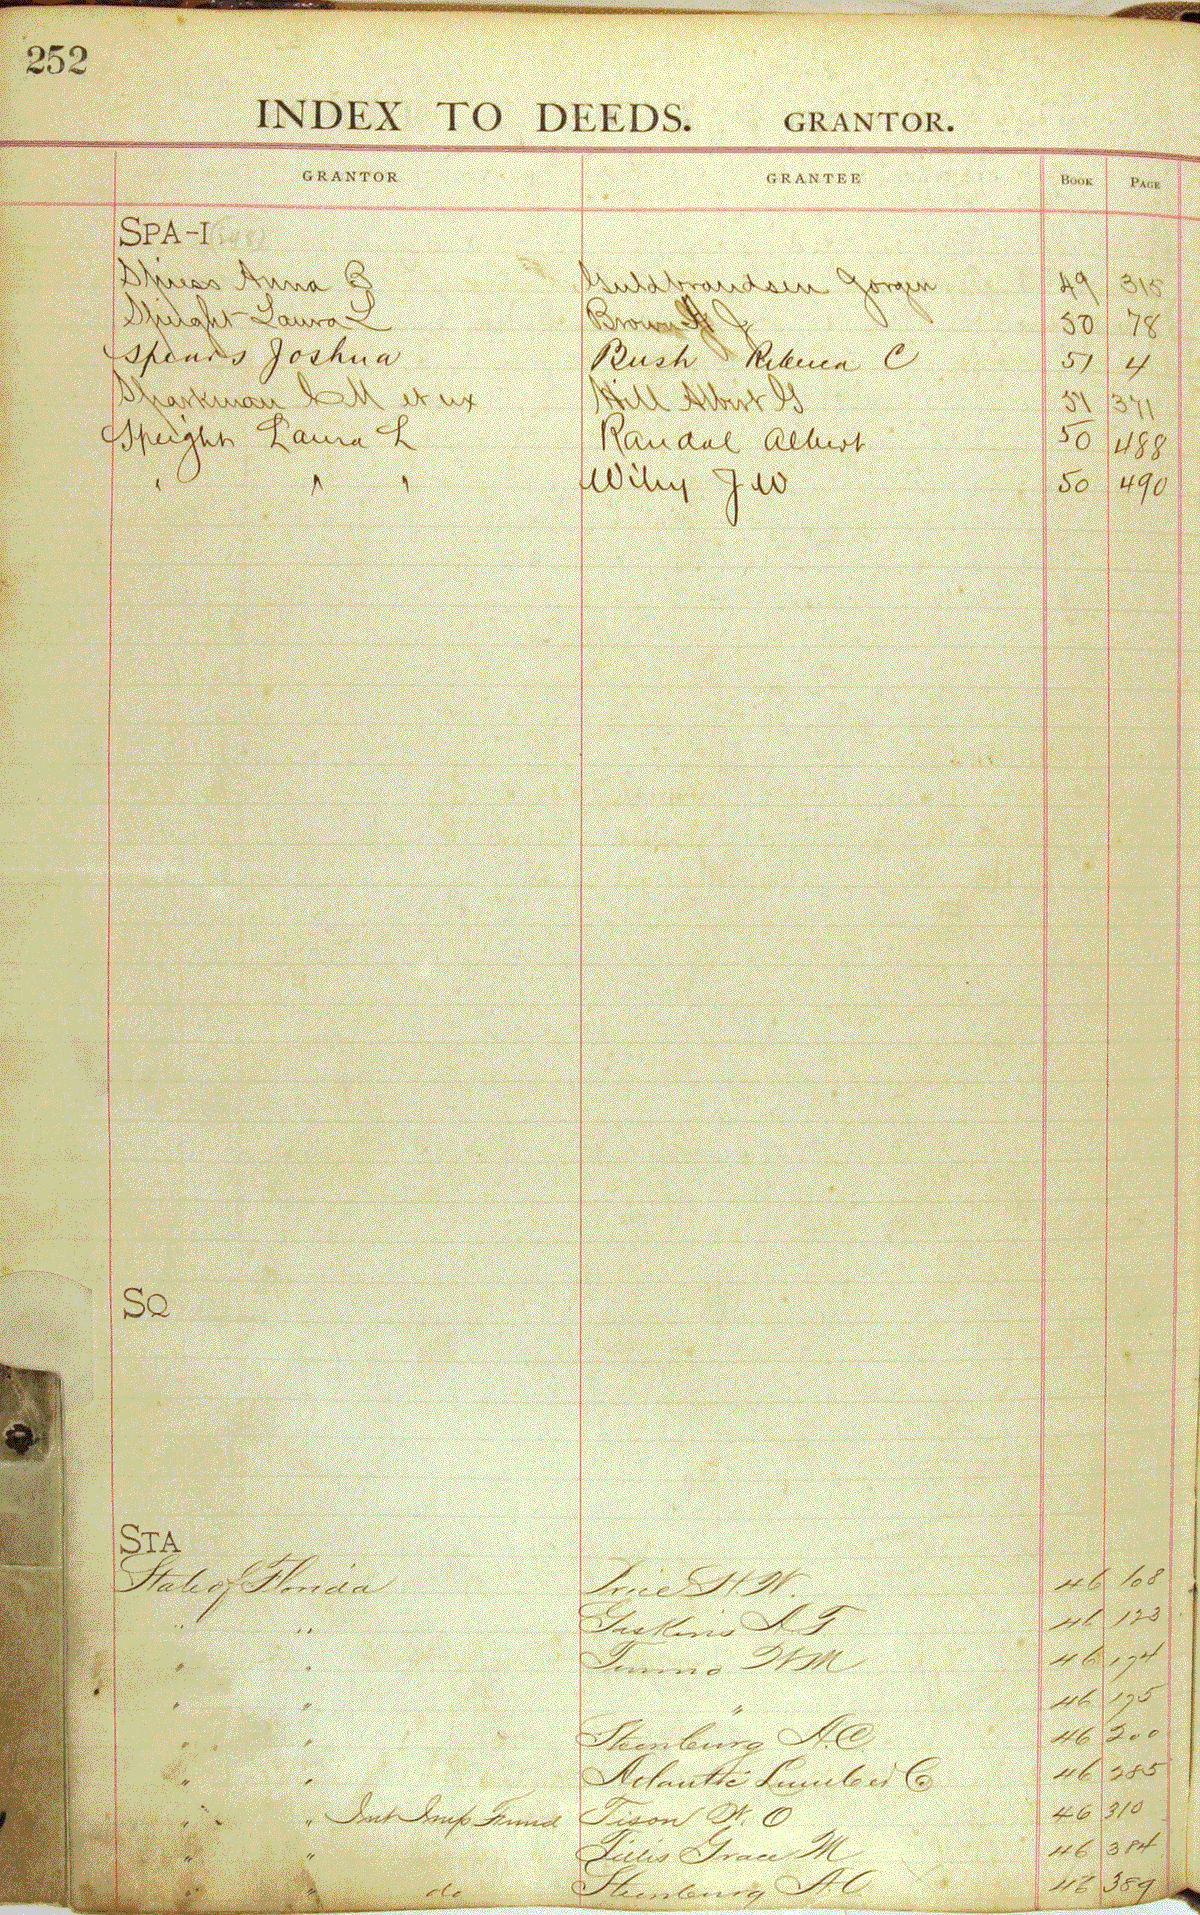 252
INDEX TO DEEDS. GRANTOR.
GRANTOR GRANTEE BOOK PAGE
SPA-I (248)
Spiess Anna B Guldbrandsen Jorgen 49 315
Speight Laura L Brown J 50 78
Spears Joshua Bush Rebecca C 51 4
Sparkman M et ux Hill Albert G 51 371
Speight Laura L Randal Albert 50 488
" " " Wiley J W 50 490
SQ
STA
State of Florida Price H. W. 46 108
" " Gaskins F 46 123
" " W M 46 174
" " " 46 175
" " Steenburg A. C. 46 200
" " Atlantic Lumber Co 46 285
" " Int Imp Fund Tison W. O 46 310
" " Grace M 46 384
" " do Steenburg A. C 46 389